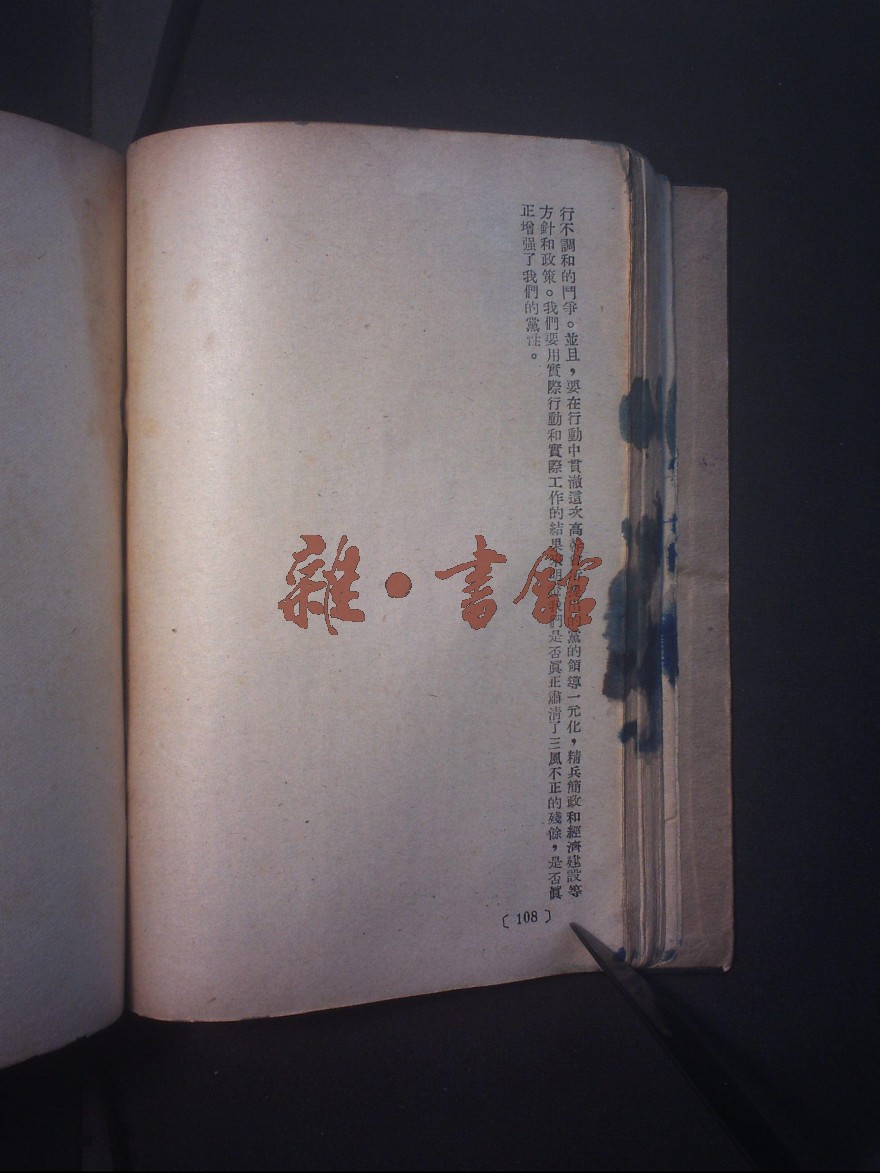 行不調和的鬥爭。並且，要在行動中貫澈這次高 黨的領導一元化，精兵簡政和經濟建設等
方針和政策。我們要用實際行動和實際工作的結果 我們是否眞正肅清了三風不正的殘餘，是否眞
正增强了我們的黨性。
〔108〕
雜·書館